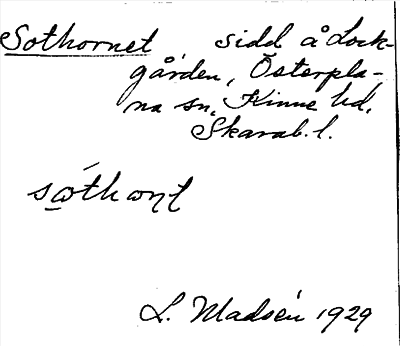 Sothornet sidd å Lock-
gården, Österpla-
na sn, Kinne hd,
Skarab. l.
L. Madsén 1929